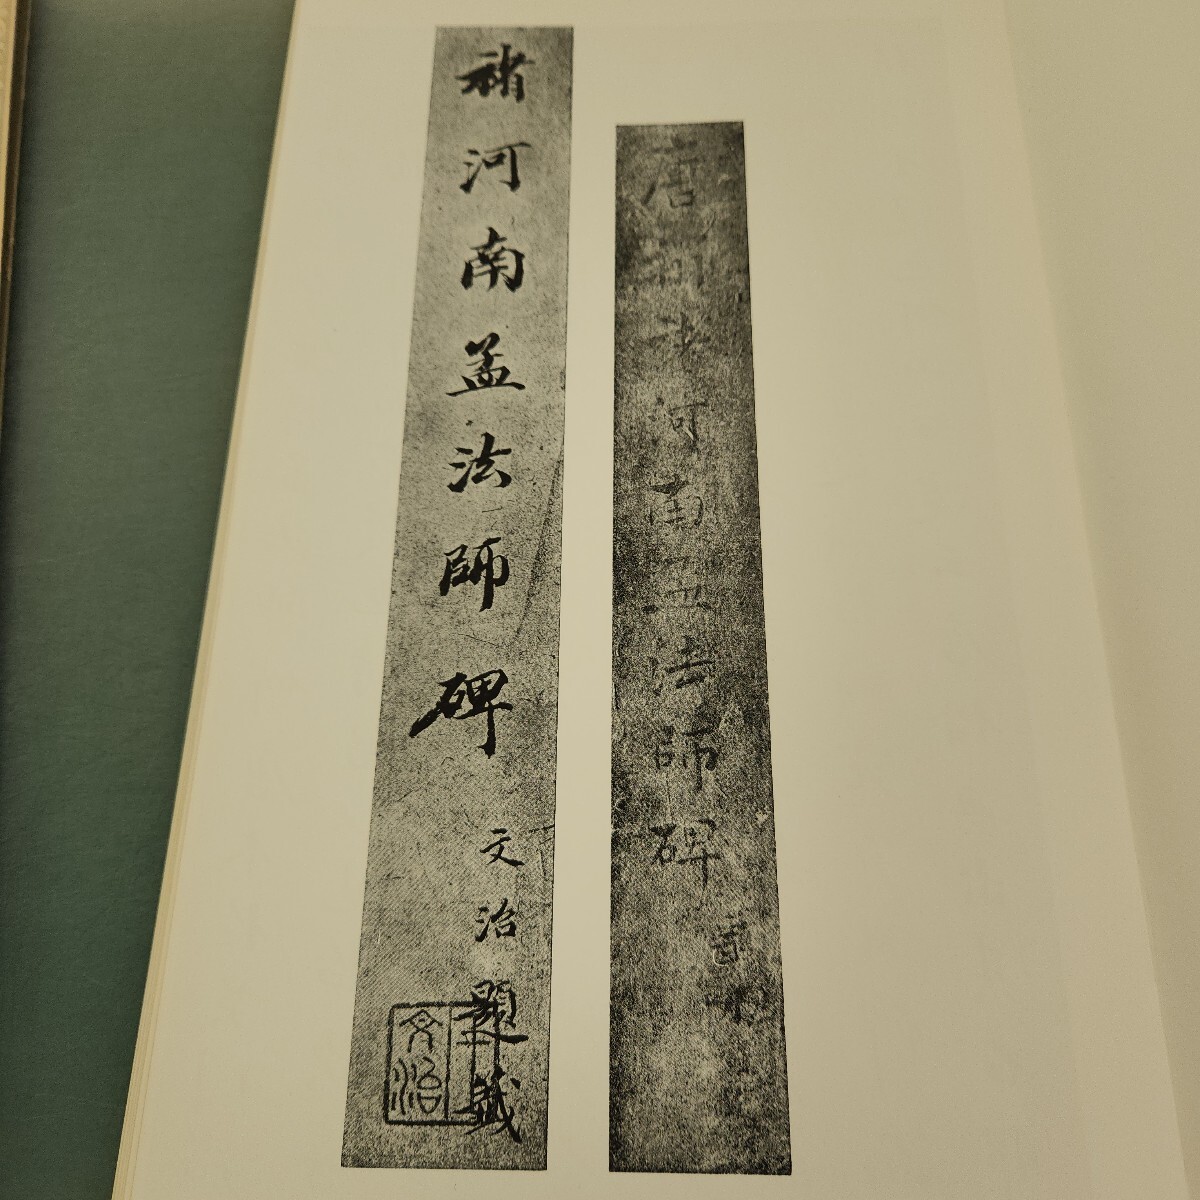 唐刻褚河南孟法師碑
褚河南孟法師碑
文治題籤
文治